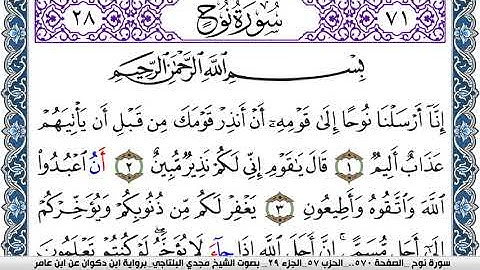 ٧١ سُورَةُ نُوحٍ ٢٨
بِسْمِ ٱللَّهِ ٱلرَّحْمَٰنِ ٱلرَّحِيمِ
إِنَّآ أَرْسَلْنَا نُوحًا إِلَىٰ قَوْمِهِۦٓ أَنْ أَنذِرْ قَوْمَكَ مِن قَبْلِ أَن يَأْتِيَهُمْ
عَذَابٌ أَلِيمٌ ١ قَالَ يَٰقَوْمِ إِنِّي لَكُمْ نَذِيرٌ مُّبِينٌ ٢ أَنُ ٱعْبُدُواْ
ٱللَّهَ وَٱتَّقُوهُ وَأَطِيعُونِ ٣ يَغْفِرْ لَكُم مِّن ذُنُوبِكُمْ وَيُؤَخِّرْكُمْ
إِلَىٰٓ أَجَلٍ مُّسَمًّى إِنَّ أَجَلَ ٱللَّهِ إِذَا جَآءَ لَا يُؤَخَّرُ لَوْ كُنتُمْ تَعْلَمُونَ
سورة نوح _ الصفحة ٥٧٠_ الحزب ٥٧_ الجزء ٢٩_ بصوت الشيخ مجدي البلتاجي_ برواية ابن ذكوان عن ابن عامر